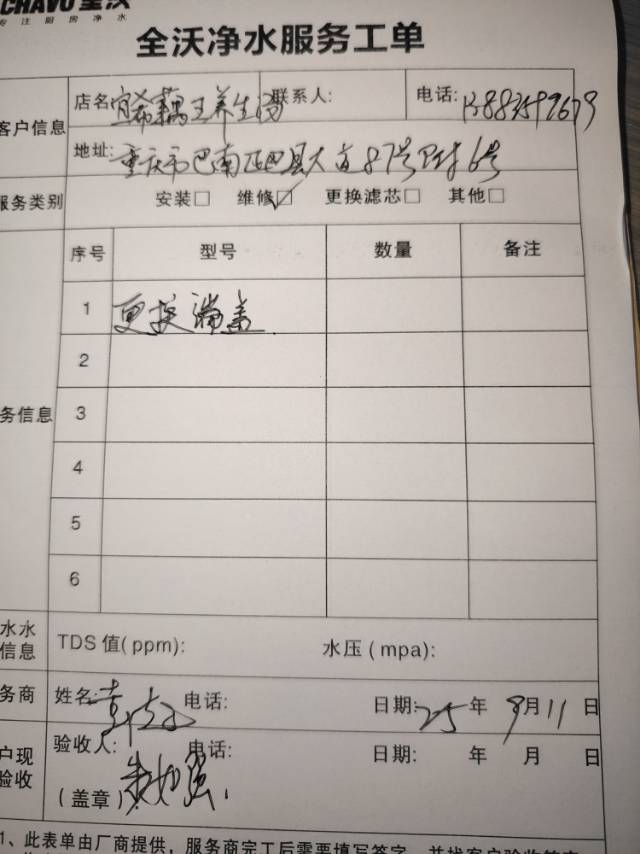 CHAVO 全沃
专注厨房净水
全沃净水服务工单
客户信息
店名 宜希藕王养生汤 联系人: 电话: 13883599679
地址: 重庆市巴南区巴县大道87号附6号
服务类别 安装□ 维修☑ 更换滤芯□ 其他□
序号 型号 数量 备注
1 更换端盖
2
务信息 3
4
5
6
水水
信息 TDS 值(ppm): 水压(mpa):
务商 姓名: 电话: 日期: 25 年 9月11日
户现
验收 验收人: 电话: 日期: 年 月 日
(盖章)
1、此表单由厂商提供,服务商完工后需要填写签字,并找客户验收签章